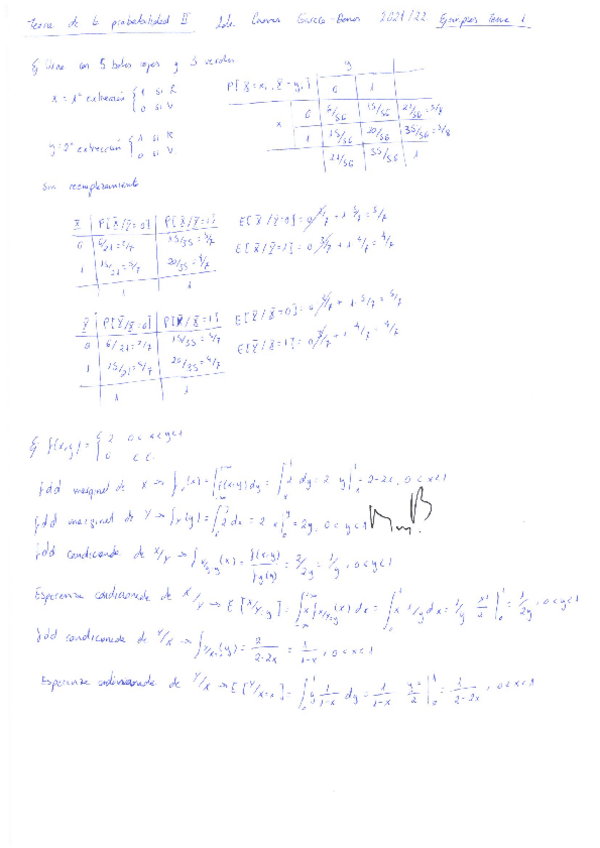 Teoría de la probabilidad II 2021/22 Ejemplos Tema 1
Ej Urna con 5 bolas rojas y 3 verdes
x = 1ª extracción { 1 si R
0 si V
y = 2ª extracción { 1 si R
0 si V
Sin reemplazamiento
y
P[X=x, Y=y] 0 1
x 0 6/56 15/56 21/56=3/8
1 15/56 20/56 35/56=5/8
21/56 35/56 1
X P[X/Y=0] P[X/Y=1]
0 6/21=2/7 15/35=3/7
1 15/21=5/7 20/35=4/7
1 1
E[X/Y=0]=0 2/7 + 1 5/7 = 5/7
E[X/Y=1]=0 3/7 + 1 4/7 = 4/7
Y P[Y/X=0] P[Y/X=1]
0 6/21=2/7 15/35=3/7
1 15/21=5/7 20/35=4/7
1 1
E[Y/X=0]=0 2/7 + 1 5/7 = 5/7
E[Y/X=1]=0 3/7 + 1 4/7 = 4/7
Ej f(x,y) = { 2 0<x<y<1
0 c.c.
fdd marginal de X → f_x(x) = ∫ f(x,y) dy = ∫ 2 dy = 2 y| = 2-2x, 0<x<1
fdd marginal de Y → f_y(y) = ∫ 2 dx = 2 x| = 2y, 0<y<1 Muy B
fdd condicionada de X/Y → f_x/y=y(x) = f(x,y)/f_y(y) = 2/2y = 1/y, 0<y<1
Esperanza condicionada de X/Y → E[X/Y=y] = ∫ x f_x/y=y(x) dx = ∫ x 1/y dx = 1/y x²/2| = 1/2y, 0<y<1
fdd condicionada de Y/X → f_y/x=x(y) = 2/2-2x = 1/1-x, 0<x<1
Esperanza condicionada de Y/X → E[Y/X=x] = ∫ y 1/1-x dy = 1/1-x y²/2| = 1/2-2x, 0<x<1